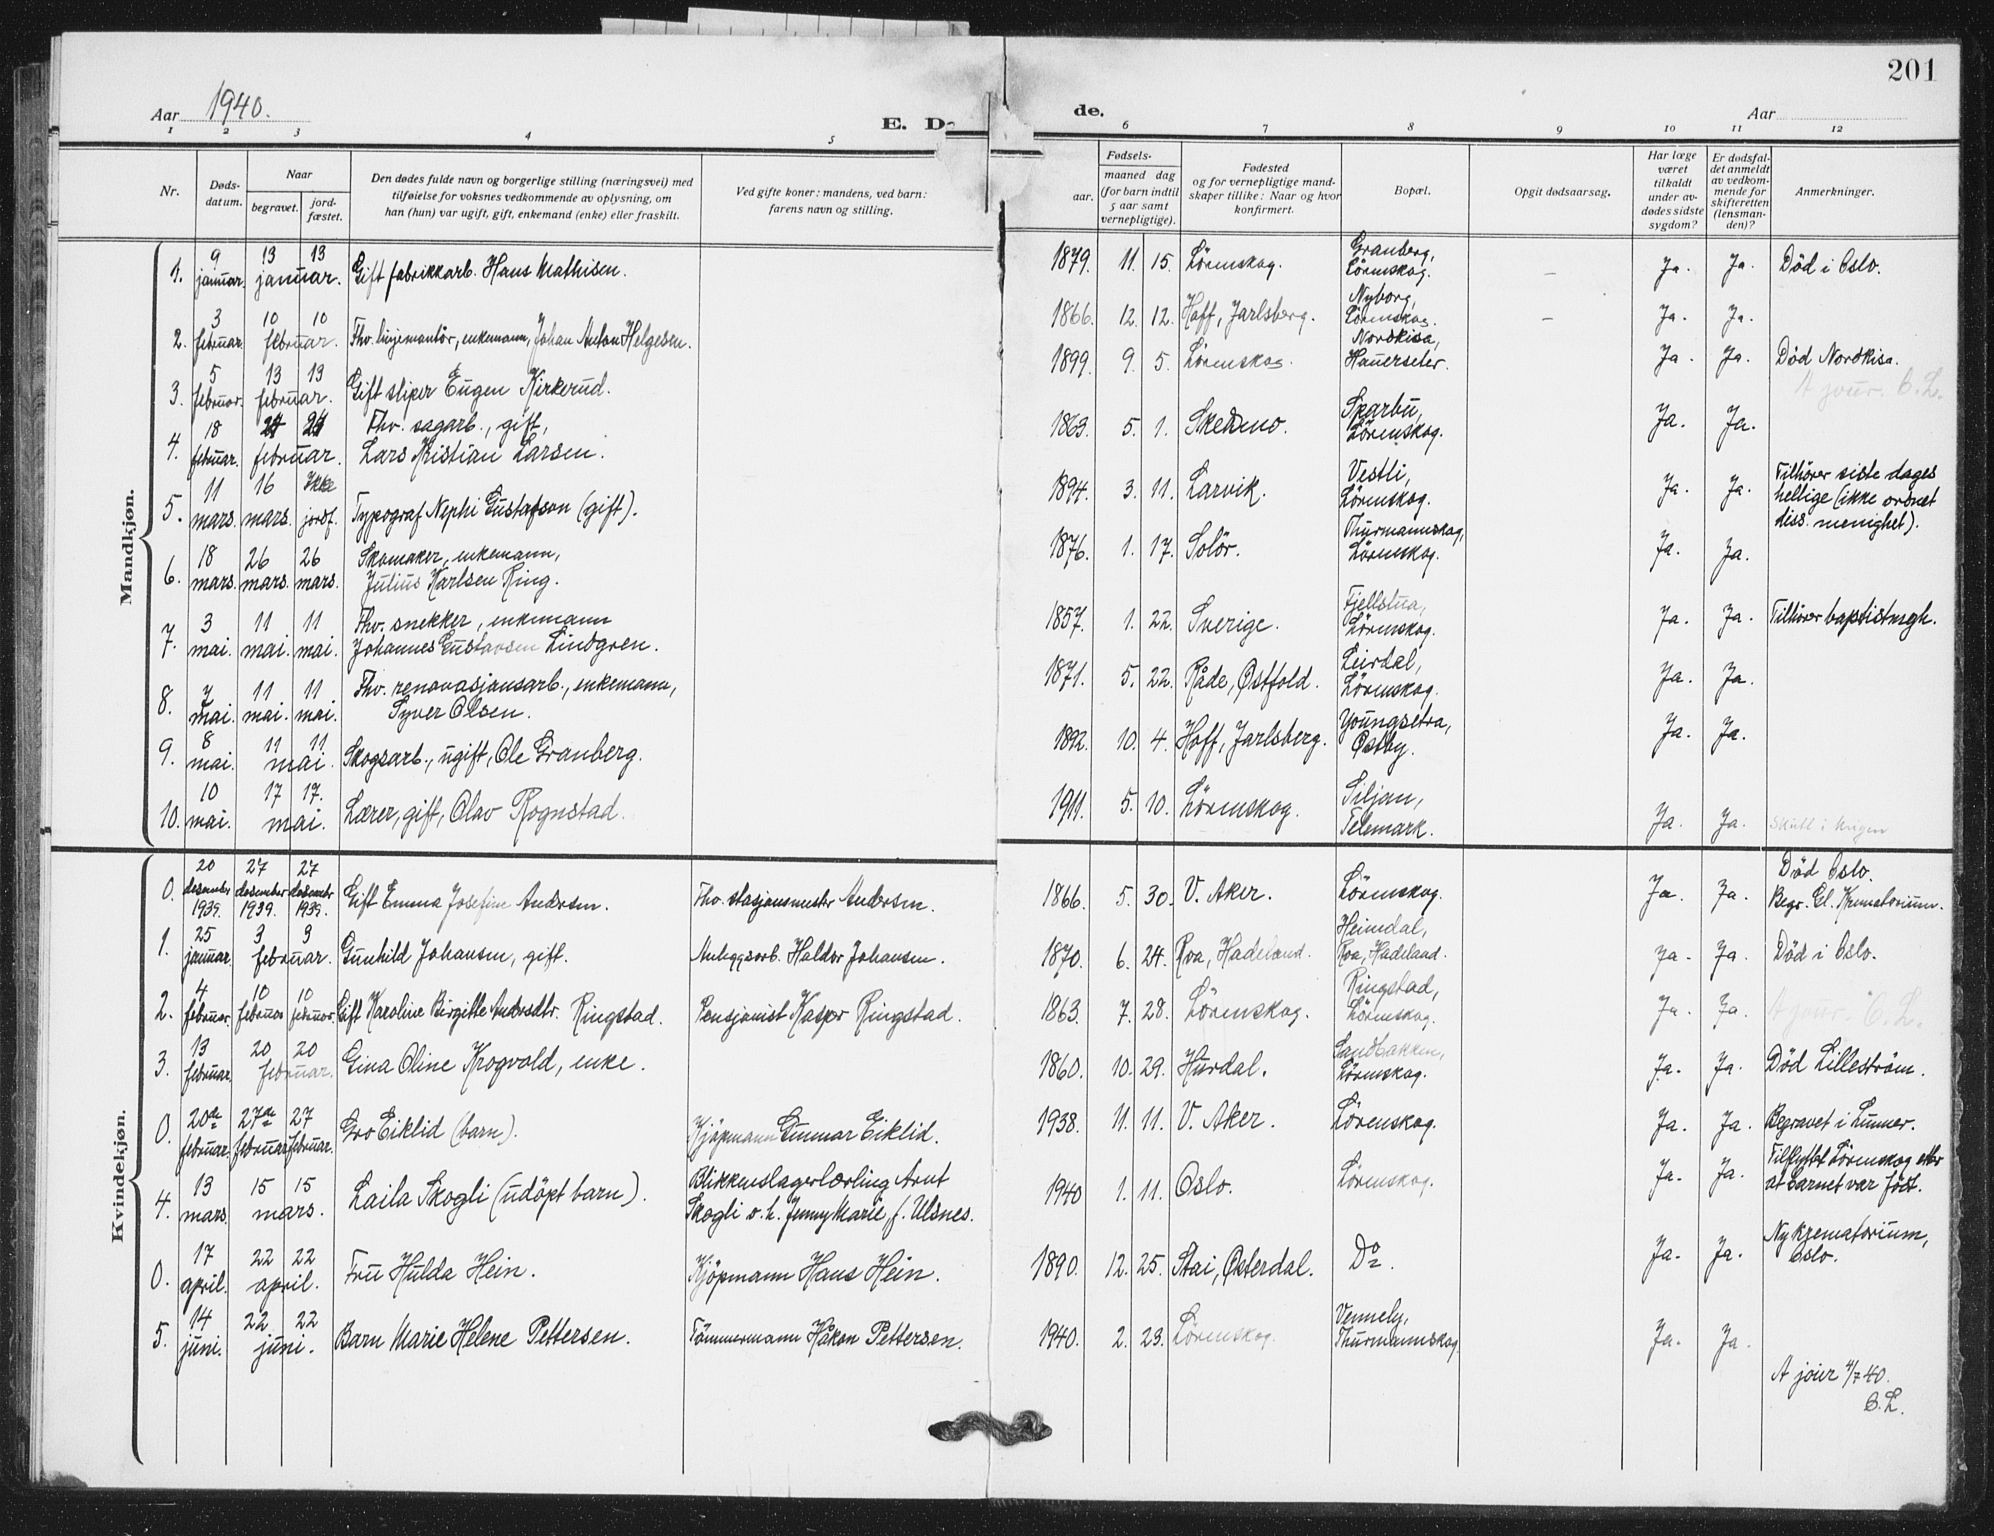 201
Aar 1940.
E. D
de.
Aar
1 2 3 4 5 6 7 8 9 10 11 12
Nr.
Døds-
datum.
Naar
begravet.
jord-
fæstet.
Den dødes fulde navn og borgerlige stilling (næringsvei) med
tilføielse for voksnes vedkommende av oplysning, om
han (hun) var ugift, gift, enkemand (enke) eller fraskilt.
Ved gifte koner: mandens, ved barn:
farens navn og stilling.
Fødsels-
aar.
maaned dag
(for barn indtil
5 aar samt
vernepligtige).
Fødested
og for vernepligtige mand-
skaper tillike: Naar og hvor
konfirmert.
Bopæl.
Opgit dødsaarsag.
Har læge
været
tilkaldt
under av-
dødes sidste
sygdom?
Er dødsfal-
det anmeldt
av vedkom-
mende for
skifteretten
(lensman-
den)?
Anmerkninger.
Mandkjøn.
1. 9 januar. 13 13 januar. Gift fabrikkarb. Hans Mathisen. 1879. 11. 15. Lörenskog. Granberg, Lörenskog. – Ja. Ja. Död i Oslo.
2. 3 februar. 10 10 februar. Fhv. linjemontör, enkemann, Johan Anton Helgesen. 1866. 12. 12. Hoff, Jarlsberg. Nyborg, Lörenskog. – Ja. Ja.
3. 5 februar. 13 13 februar. Gift sliper Eugen Kirkerud. 1899. 9. 5. Lörenskog. Nordkisa, Hauerseter. Ja. Ja. Död Nordkisa.
A jour. C. L.
4. 18 februar. 24 24 februar. Fhv. sagarb., gift,
Lars Kristian Larsen. 1863. 5. 1. Skedsmo. Sparbu, Lörenskog. Ja. Ja.
5. 11 mars. 16 mars. Ikke jordf. Typograf Nephi Gustafson (gift). 1894. 3. 11. Larvik. Vestli, Lörenskog. Ja. Ja. Tilhörer siste dages
hellige (ikke ordnet
diss. menighet).
6. 18 mars. 26 mars. 26 mars. Skomaker, enkemann,
Julius Karlsen Ring. 1876. 1. 17. Solör. Thurmannskog, Lörenskog. Ja. Ja.
7. 3 mai. 11 mai. 11 mai. Fhv. snekker, enkemann
Johannes Gustavsen Lindgren. 1857. 1. 22. Sverige. Fjellstua, Lörenskog. Ja. Ja. Tilhörer baptistmgh.
8. 7 mai. 11 mai. 11 mai. Fhv. renovasjonsarb., enkemann,
Syver Olsen. 1871. 5. 22. Råde, Østfold. Leirdal, Lörenskog. Ja. Ja.
9. 8 mai. 11 11 mai. Skogsarb., ugift, Ole Granberg. 1892. 10. 4. Hoff, Jarlsberg. Youngsetra, Østby. Ja. Ja.
10. 10 mai. 17 17. mai. Lærer, gift, Olav Rognstad. 1911. 5. 10. Lörenskog. Siljan, Telemark. Ja. Ja. Skutt i krigen
Kvindekjøn.
0. 20 desember 1939. 27 desember 1939. 27 desember 1939. Gift Emma Josefine Andersen. Fhv. stasjonsmester Andersen. 1866. 5. 30. V. Aker. Lörenskog. Ja. Ja. Död Oslo.
Begr. Gl. Krematorium.
1. 25 januar. 3 3 februar. Gunhild Johansen, gift. Anleggsarb. Haldor Johansen. 1870. 6. 24. Roa, Hadeland. Heimdal, Roa, Hadeland. Ja. Ja. Död i Oslo.
2. 4 februar. 10 februar 10 februar. Gift Karoline Birgitte Andersdtr. Ringstad. Pensjonist Kasper Ringstad. 1863. 7. 28. Lörenskog. Ringstad, Lörenskog. Ja. Ja. A jour. C. L.
3. 13 februar. 20 20 februar. Gina Oline Krogvold, enke. 1860. 10. 29. Hurdal. Sandbakken, Lörenskog. Ja. Ja. Död Lilleström.
0. 20de februar. 27de februar 27 februar. Gro Eiklid (barn). Kjöpmann Gunnar Eiklid. 1938. 11. 11. V. Aker. Lörenskog. Ja. Ja. Begravet i Lunner.
4. 13 mars. 15 15 mars. Laila Skogli (udöpt barn). Blikkenslagerlærling Arnt
Skogli o. h. Jenny Marie, f. Ulsnes. 1940 1. 11. Oslo. Lörenskog. Ja. Ja. Tilflyttet Lörenskog etter
at barnet var födt.
0. 17 april. 22 22 april. Fru Hulda Hein. Kjöpmann Hans Hein. 1890. 12. 25. Stai, Østerdal. Do. Ja. Ja. Ny krematorium,
Oslo.
5. 14 juni. 22 22 juni. Barn Marie Helene Pettersen. Tömmermann Håkon Pettersen. 1940. 2. 23. Lörenskog. Vennely, Thurmannskog. Ja. Ja.
A jour 4/7 40.
C. L.